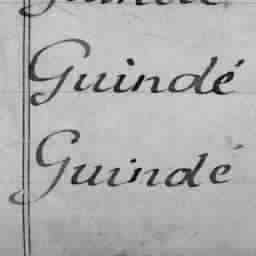 Guindé
Guindé